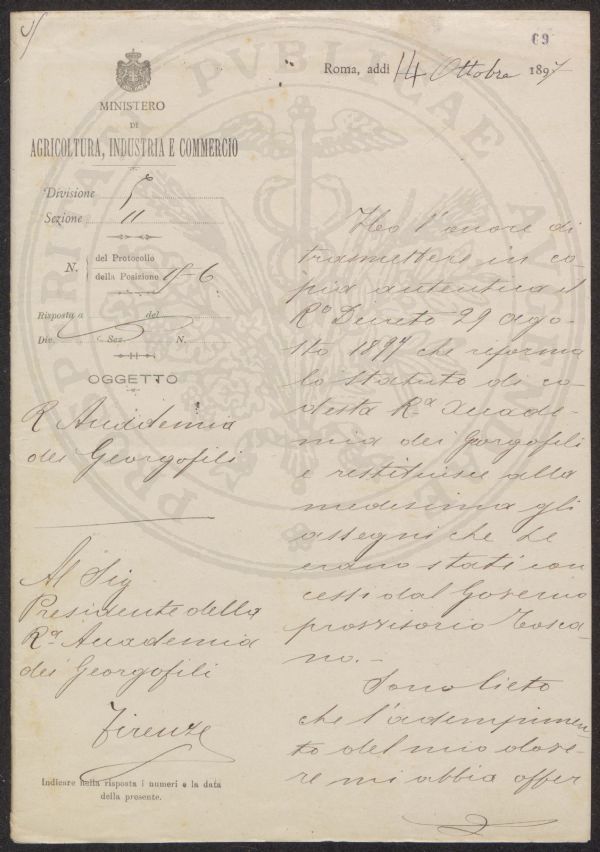 69
Roma, addì 14 Ottobre 1897
MINISTERO
DI
AGRICOLTURA, INDUSTRIA E COMMERCIO
Divisione
Sezione
N.
del Protocollo
della Posizione
Risposta a del
Div. Sez. N.
OGGETTO
R Accademia
dei Georgofili
Al Sig
Presidente della
Rª Accademia
dei Georgofili
Firenze
Indicare nella risposta i numeri e la data
della presente.
Ho l'onore di
trasmettere in co-
pia autentica il
Rº Decreto 29 ago-
sto 1897 che riforma
lo statuto di co-
desta Rª Accade-
mia dei Georgofili
e restituisce alla
medesima gli
assegni che Le
erano stati con
cessi dal Governo
provvisorio Tosca
no.-
Sono lieto
che l'adempimen-
to del mio dove-
re mi abbia offer
PROSPERITATI PVBLICAE AVGENDAE